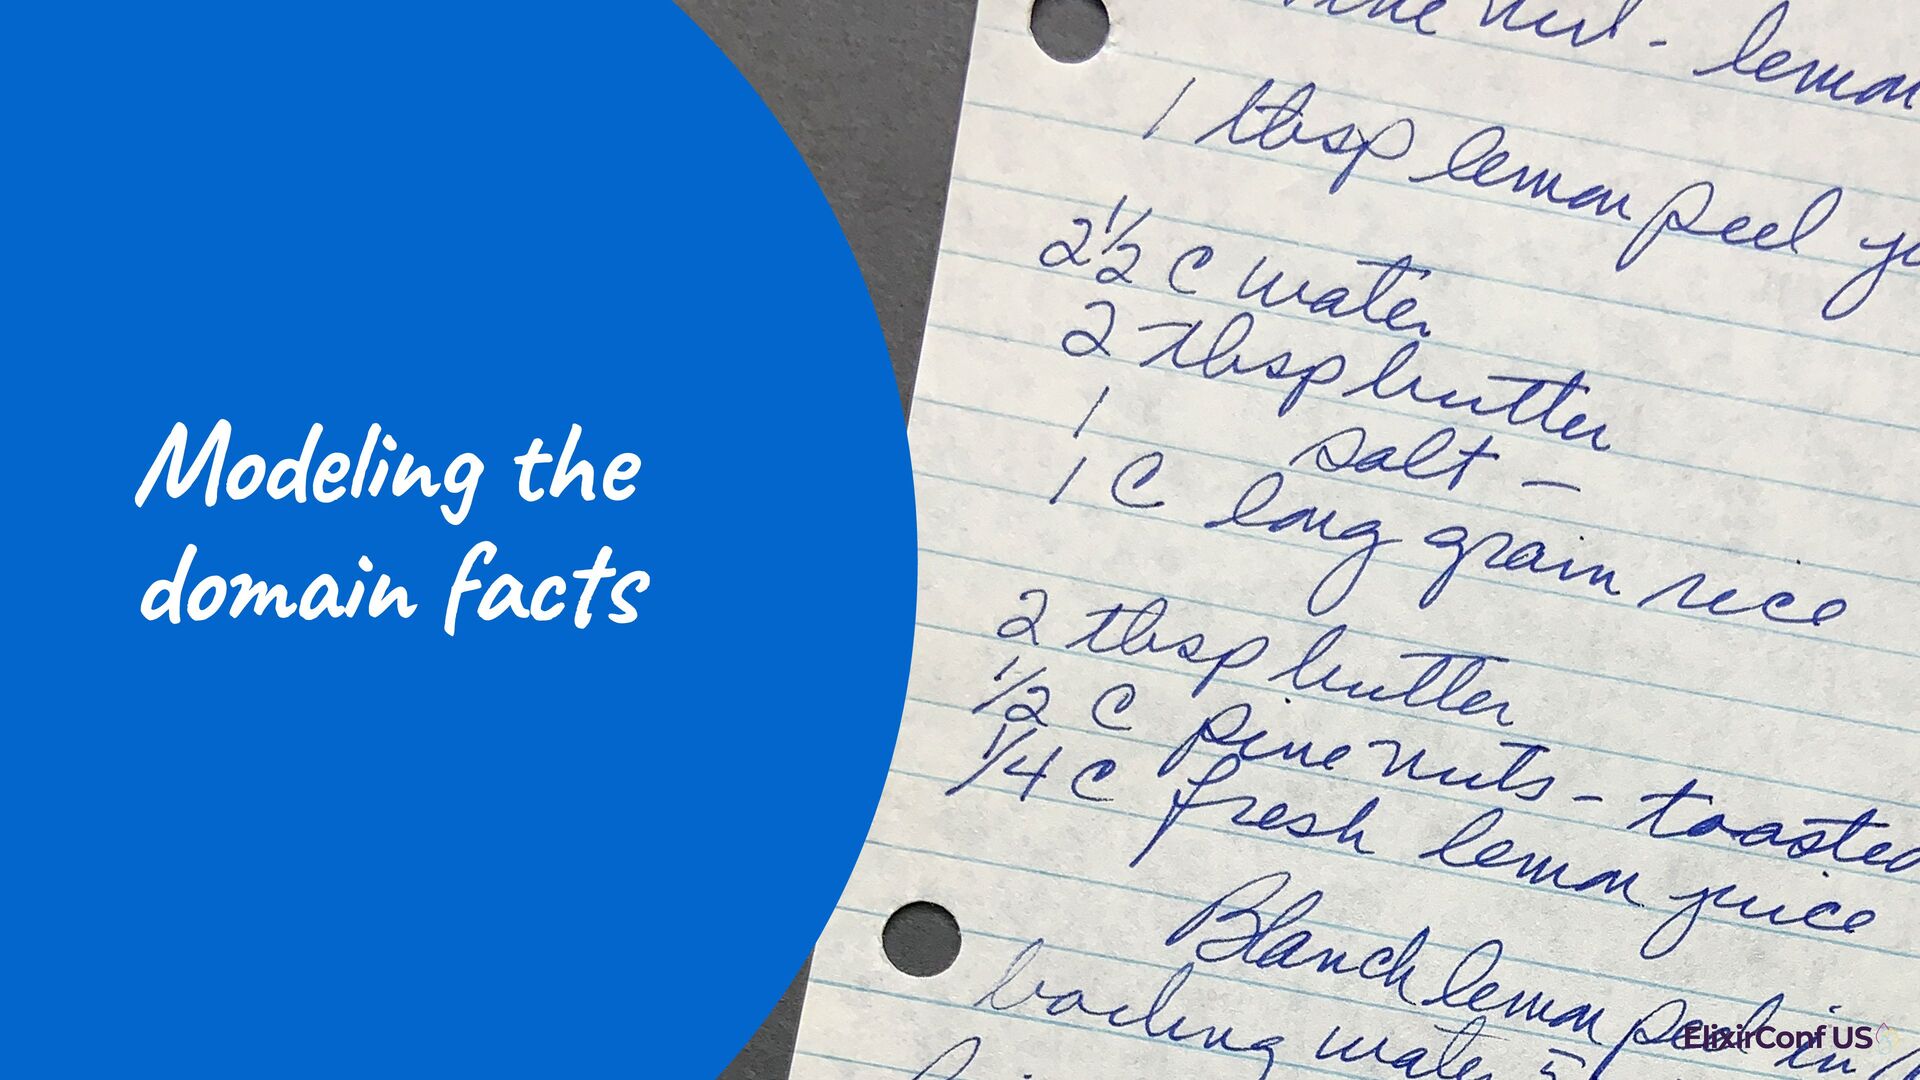 Modeling the
domain facts
Pine nut - lemon
1 tbsp lemon peel
2 1/2 C water
2 tbsp butter
1 salt -
1 C long grain rice
2 tbsp butter
1/2 C pine nuts - toasted
1/4 C fresh lemon juice
Blanch lemon peel in
boiling water 5
ElixirConf US